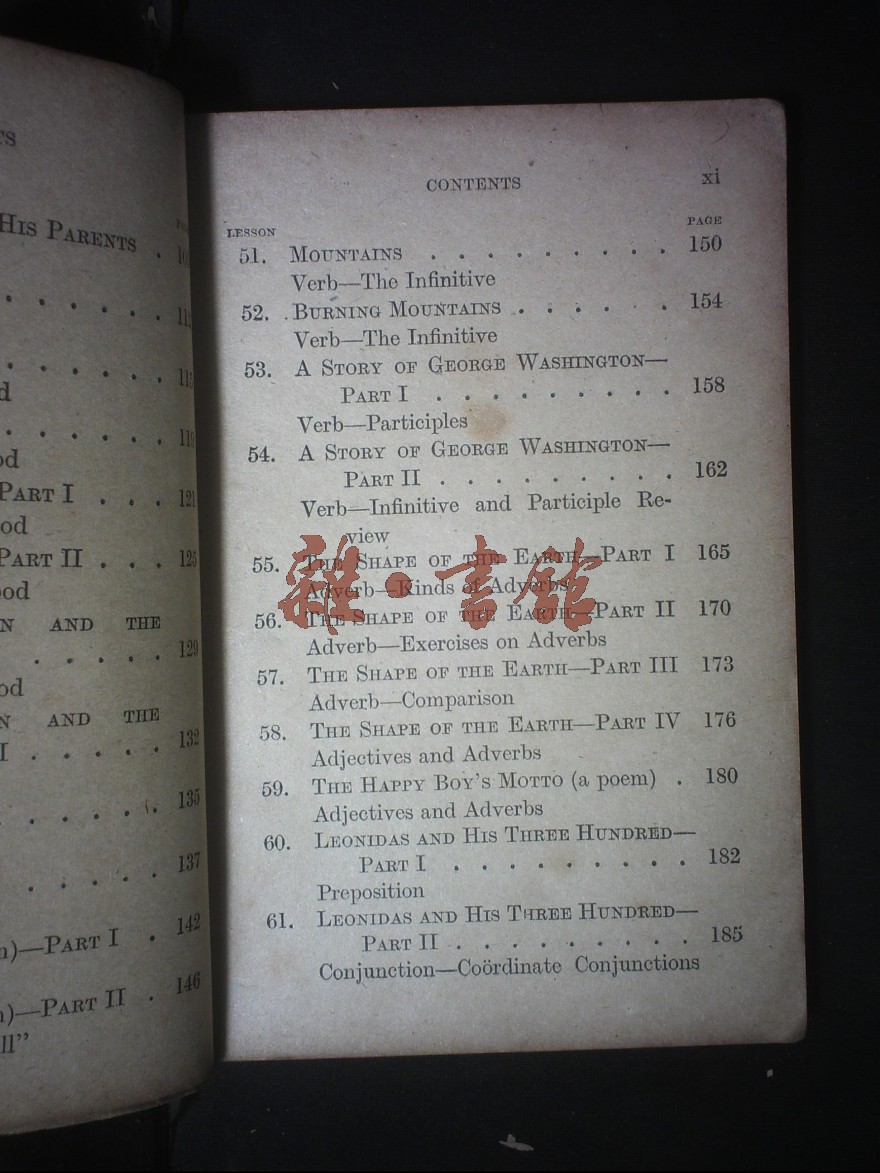 TS
HIS PARENTS .
112
115
d
119
od
PART I . . . 121
ood
PART II . . . 125
ood
N AND THE
129
od
N AND THE
I . . . . . 132
135
137
)—PART I . 142
)—PART II . 146
ll”
CONTENTS xi
LESSON PAGE
51. MOUNTAINS . . . . . . . . . 150
Verb—The Infinitive
52. BURNING MOUNTAINS . . . . . . 154
Verb—The Infinitive
53. A STORY OF GEORGE WASHINGTON—
PART I . . . . . . . . . 158
Verb—Participles
54. A STORY OF GEORGE WASHINGTON—
PART II . . . . . . . . . 162
Verb—Infinitive and Participle Re-
view
55. THE SHAPE OF THE EARTH—PART I 165
Adverb—Kinds of Adverbs
56. THE SHAPE OF THE EARTH—PART II 170
Adverb—Exercises on Adverbs
57. THE SHAPE OF THE EARTH—PART III 173
Adverb—Comparison
58. THE SHAPE OF THE EARTH—PART IV 176
Adjectives and Adverbs
59. THE HAPPY BOY'S MOTTO (a poem) . 180
Adjectives and Adverbs
60. LEONIDAS AND HIS THREE HUNDRED—
PART I . . . . . . . . . 182
Preposition
61. LEONIDAS AND HIS THREE HUNDRED—
PART II . . . . . . . . . 185
Conjunction—Coördinate Conjunctions
雜·書館